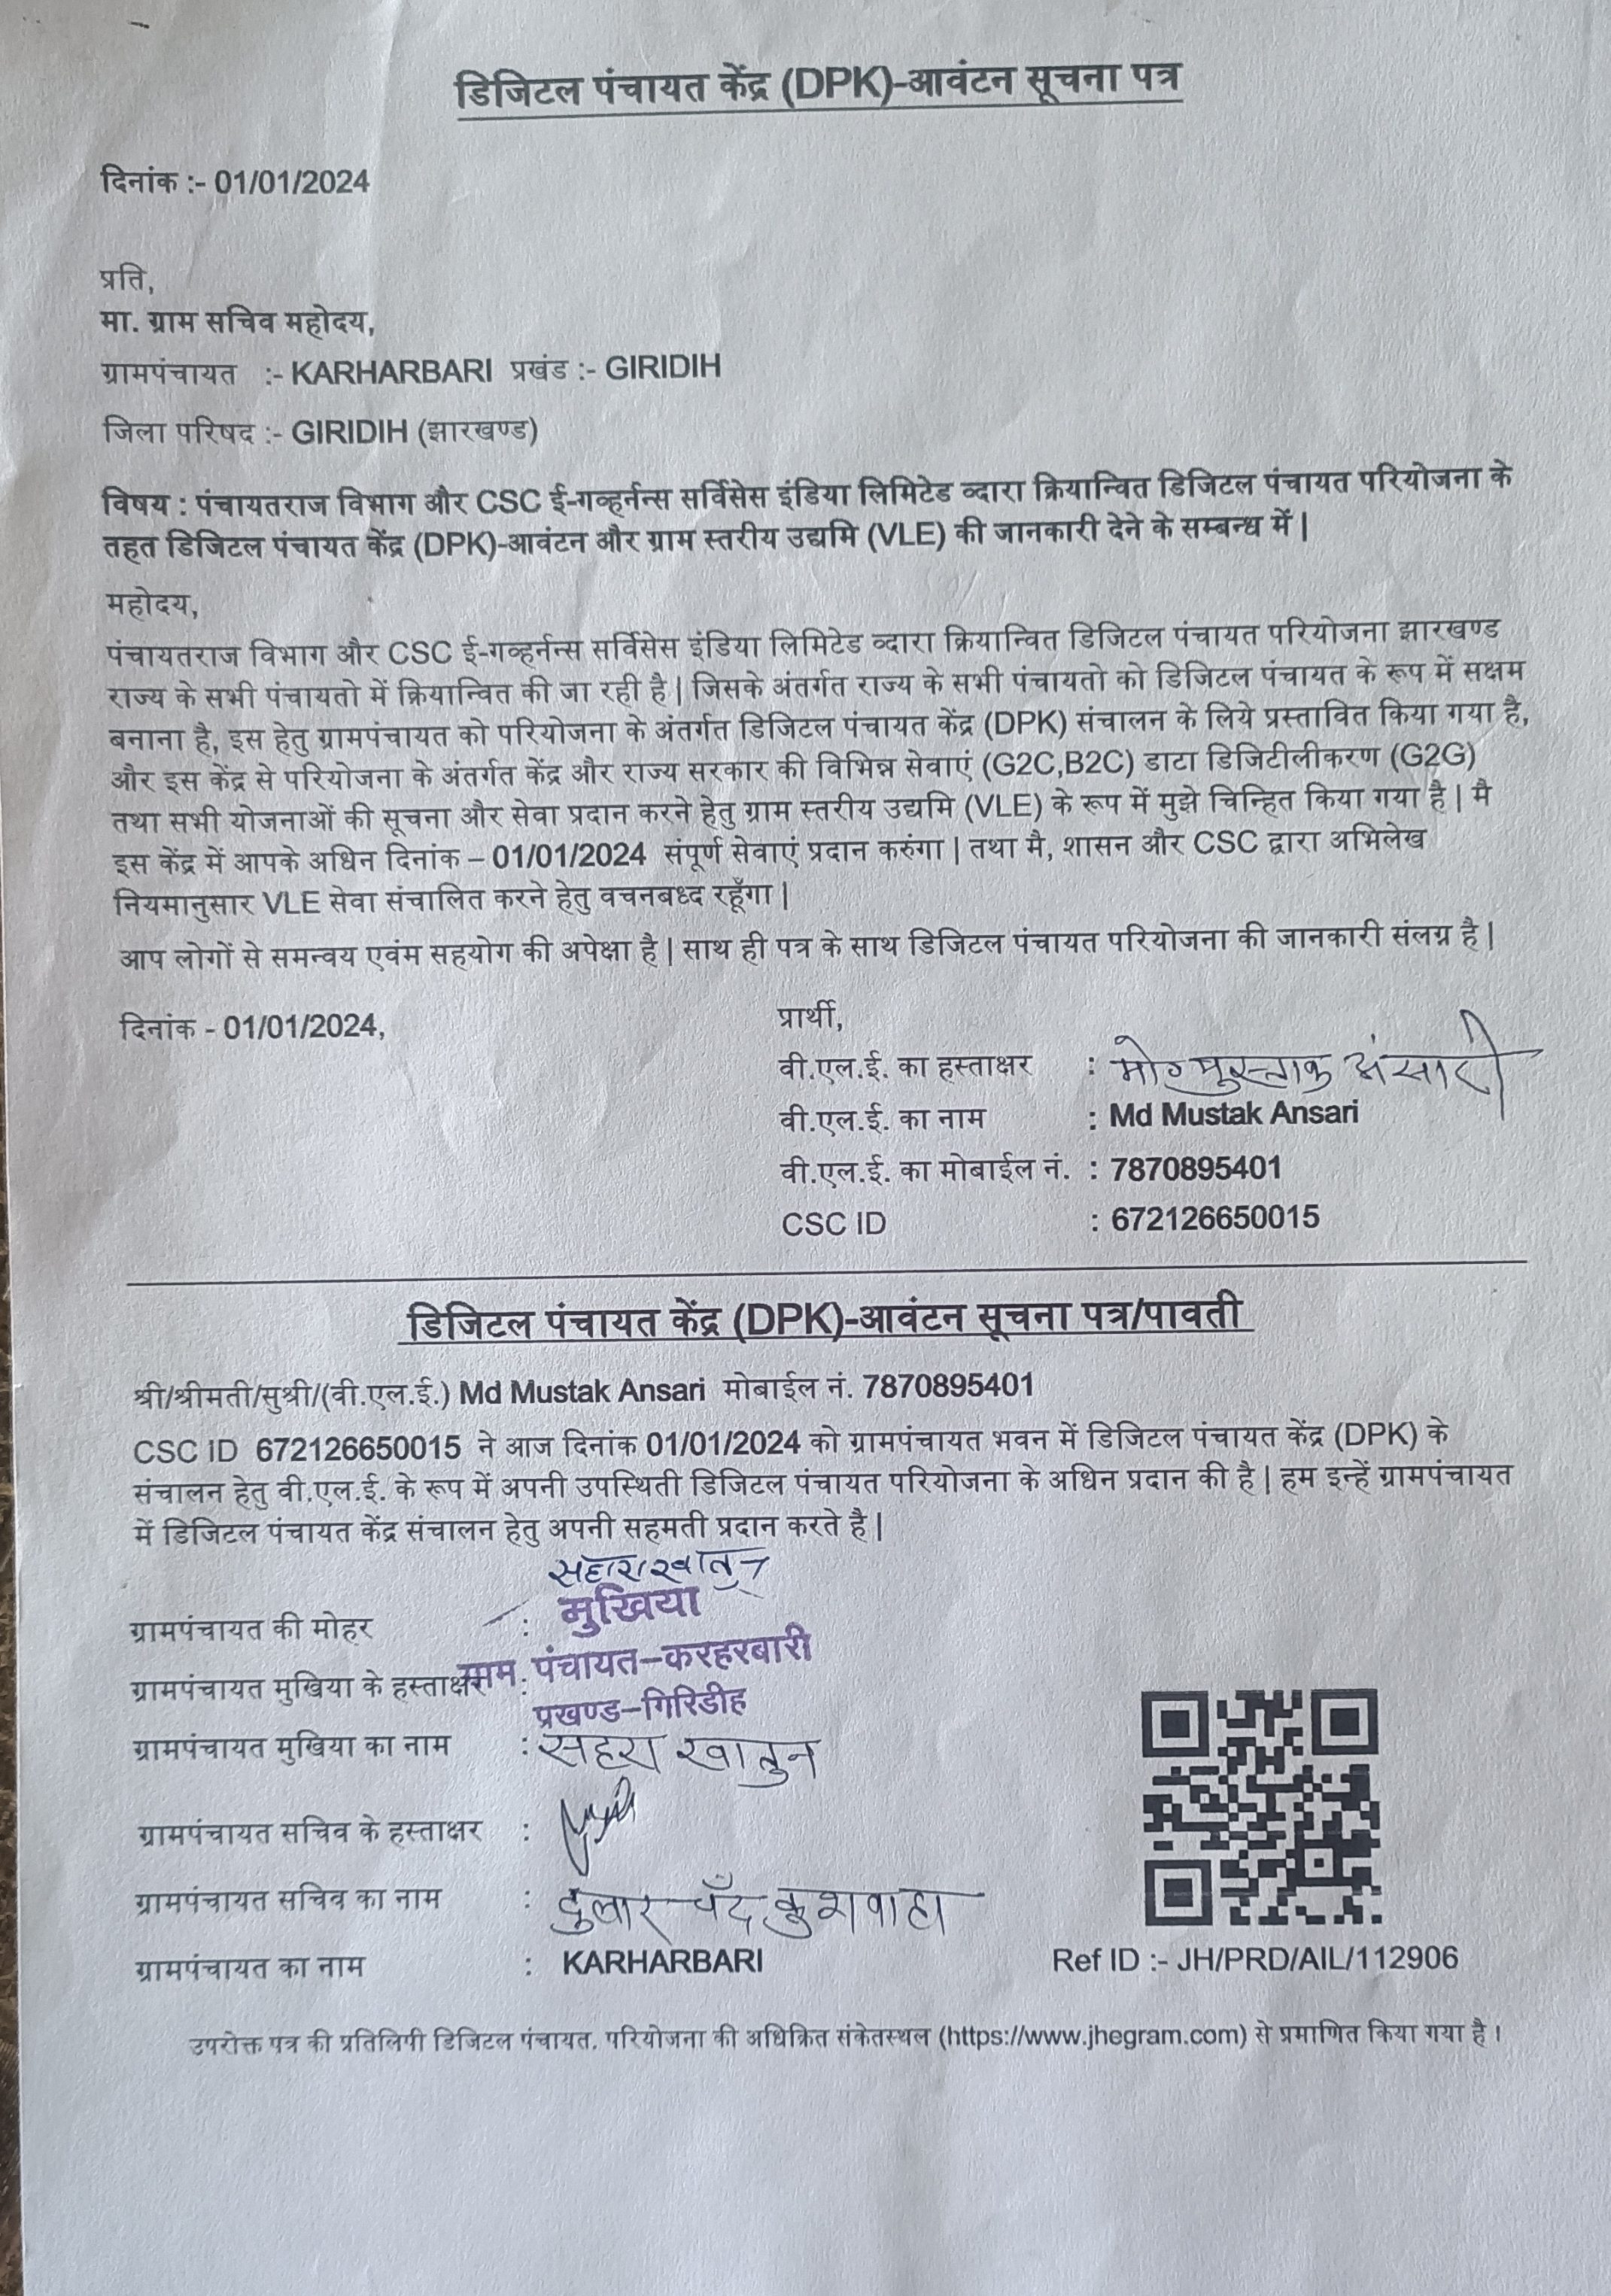 डिजिटल पंचायत केंद्र (DPK)-आवंटन सूचना पत्र
दिनांक :- 01/01/2024
प्रति,
मा. ग्राम सचिव महोदय,
ग्रामपंचायत :- KARHARBARI प्रखंड :- GIRIDIH
जिला परिषद :- GIRIDIH (झारखण्ड)
विषय : पंचायतराज विभाग और CSC ई-गव्हर्नन्स सर्विसेस इंडिया लिमिटेड व्दारा क्रियान्वित डिजिटल पंचायत परियोजना के
तहत डिजिटल पंचायत केंद्र (DPK)-आवंटन और ग्राम स्तरीय उद्यमि (VLE) की जानकारी देने के सम्बन्ध में |
महोदय,
पंचायतराज विभाग और CSC ई-गव्हर्नन्स सर्विसेस इंडिया लिमिटेड व्दारा क्रियान्वित डिजिटल पंचायत परियोजना झारखण्ड
राज्य के सभी पंचायतो में क्रियान्वित की जा रही है | जिसके अंतर्गत राज्य के सभी पंचायतो को डिजिटल पंचायत के रूप में सक्षम
बनाना है, इस हेतु ग्रामपंचायत को परियोजना के अंतर्गत डिजिटल पंचायत केंद्र (DPK) संचालन के लिये प्रस्तावित किया गया है,
और इस केंद्र से परियोजना के अंतर्गत केंद्र और राज्य सरकार की विभिन्न सेवाएं (G2C,B2C) डाटा डिजिटीलीकरण (G2G)
तथा सभी योजनाओं की सूचना और सेवा प्रदान करने हेतु ग्राम स्तरीय उद्यमि (VLE) के रूप में मुझे चिन्हित किया गया है | मै
इस केंद्र में आपके अधिन दिनांक – 01/01/2024 संपूर्ण सेवाएं प्रदान करुंगा | तथा मै, शासन और CSC द्वारा अभिलेख
नियमानुसार VLE सेवा संचालित करने हेतु वचनबध्द रहूँगा |
आप लोगों से समन्वय एवंम सहयोग की अपेक्षा है | साथ ही पत्र के साथ डिजिटल पंचायत परियोजना की जानकारी संलग्न है |
दिनांक - 01/01/2024,
प्रार्थी,
वी.एल.ई. का हस्ताक्षर : मो० मुस्ताक अंसारी
वी.एल.ई. का नाम : Md Mustak Ansari
वी.एल.ई. का मोबाईल नं. : 7870895401
CSC ID : 672126650015
डिजिटल पंचायत केंद्र (DPK)-आवंटन सूचना पत्र/पावती
श्री/श्रीमती/सुश्री/(वी.एल.ई.) Md Mustak Ansari मोबाईल नं. 7870895401
CSC ID 672126650015 ने आज दिनांक 01/01/2024 को ग्रामपंचायत भवन में डिजिटल पंचायत केंद्र (DPK) के
संचालन हेतु वी.एल.ई. के रूप में अपनी उपस्थिती डिजिटल पंचायत परियोजना के अधिन प्रदान की है | हम इन्हें ग्रामपंचायत
में डिजिटल पंचायत केंद्र संचालन हेतु अपनी सहमती प्रदान करते है |
सहारा खातुन
ग्रामपंचायत की मोहर : मुखिया
ग्रामपंचायत मुखिया के हस्ताक्षर : ग्राम पंचायत–करहरबारी
प्रखण्ड–गिरिडीह
ग्रामपंचायत मुखिया का नाम : सहरा खातुन
ग्रामपंचायत सचिव के हस्ताक्षर :
ग्रामपंचायत सचिव का नाम : दुलार चँद कुशवाहा
ग्रामपंचायत का नाम : KARHARBARI
Ref ID :- JH/PRD/AIL/112906
उपरोक्त पत्र की प्रतिलिपी डिजिटल पंचायत. परियोजना की अधिक्रित संकेतस्थल (https://www.jhegram.com) से प्रमाणित किया गया है ।